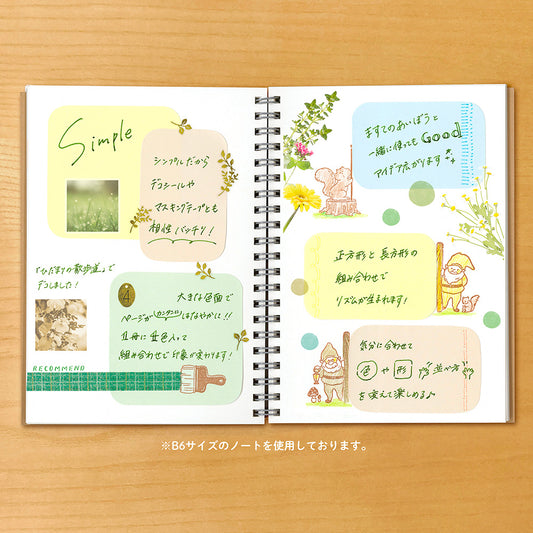 Simple
シンプルだから
デコシールや
マスキングテープとも
相性バッチリ!
『ひだまりの散歩道』で
デコしました!
4
大きな色面で
ページがカンタンにはなやかに!!
1冊に 4色入って
組み合わせで印象が変わります!
RECOMMEND
ますてのあいぼうと
一緒に使っても Good
アイデア広がります
正方形と長方形の
組み合わせで
リズムが生まれます!
気分に合わせて
色 や 形 並べ方
を変えて楽しめる♪
※B6サイズのノートを使用しております。